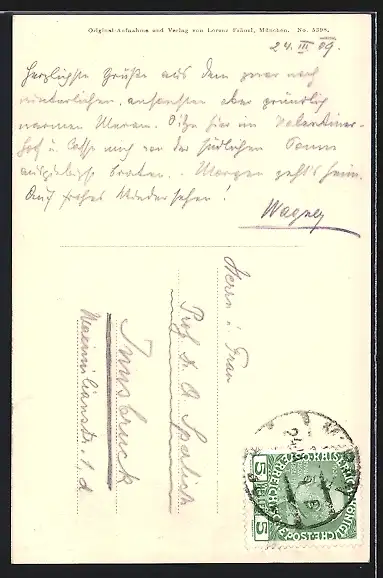 Original-Aufnahme und Verlag von Lorenz Fränzl, München. No. 5398.
24. III 09.
Herzlichste Grüße aus dem zwar noch
winterlichen, ansonsten aber gründlich
warmen Meran. Sitze hier im Valentiner-
hof u. lasse mich von der südlichen Sonne
ausgiebigst braten. - Morgen geht's heim.
Auf frohes Wiedersehen!
Wagner
Herrn u. Frau
Prof. Dr. A
Innsbruck
Maximilianstr. 1, d.
5 5